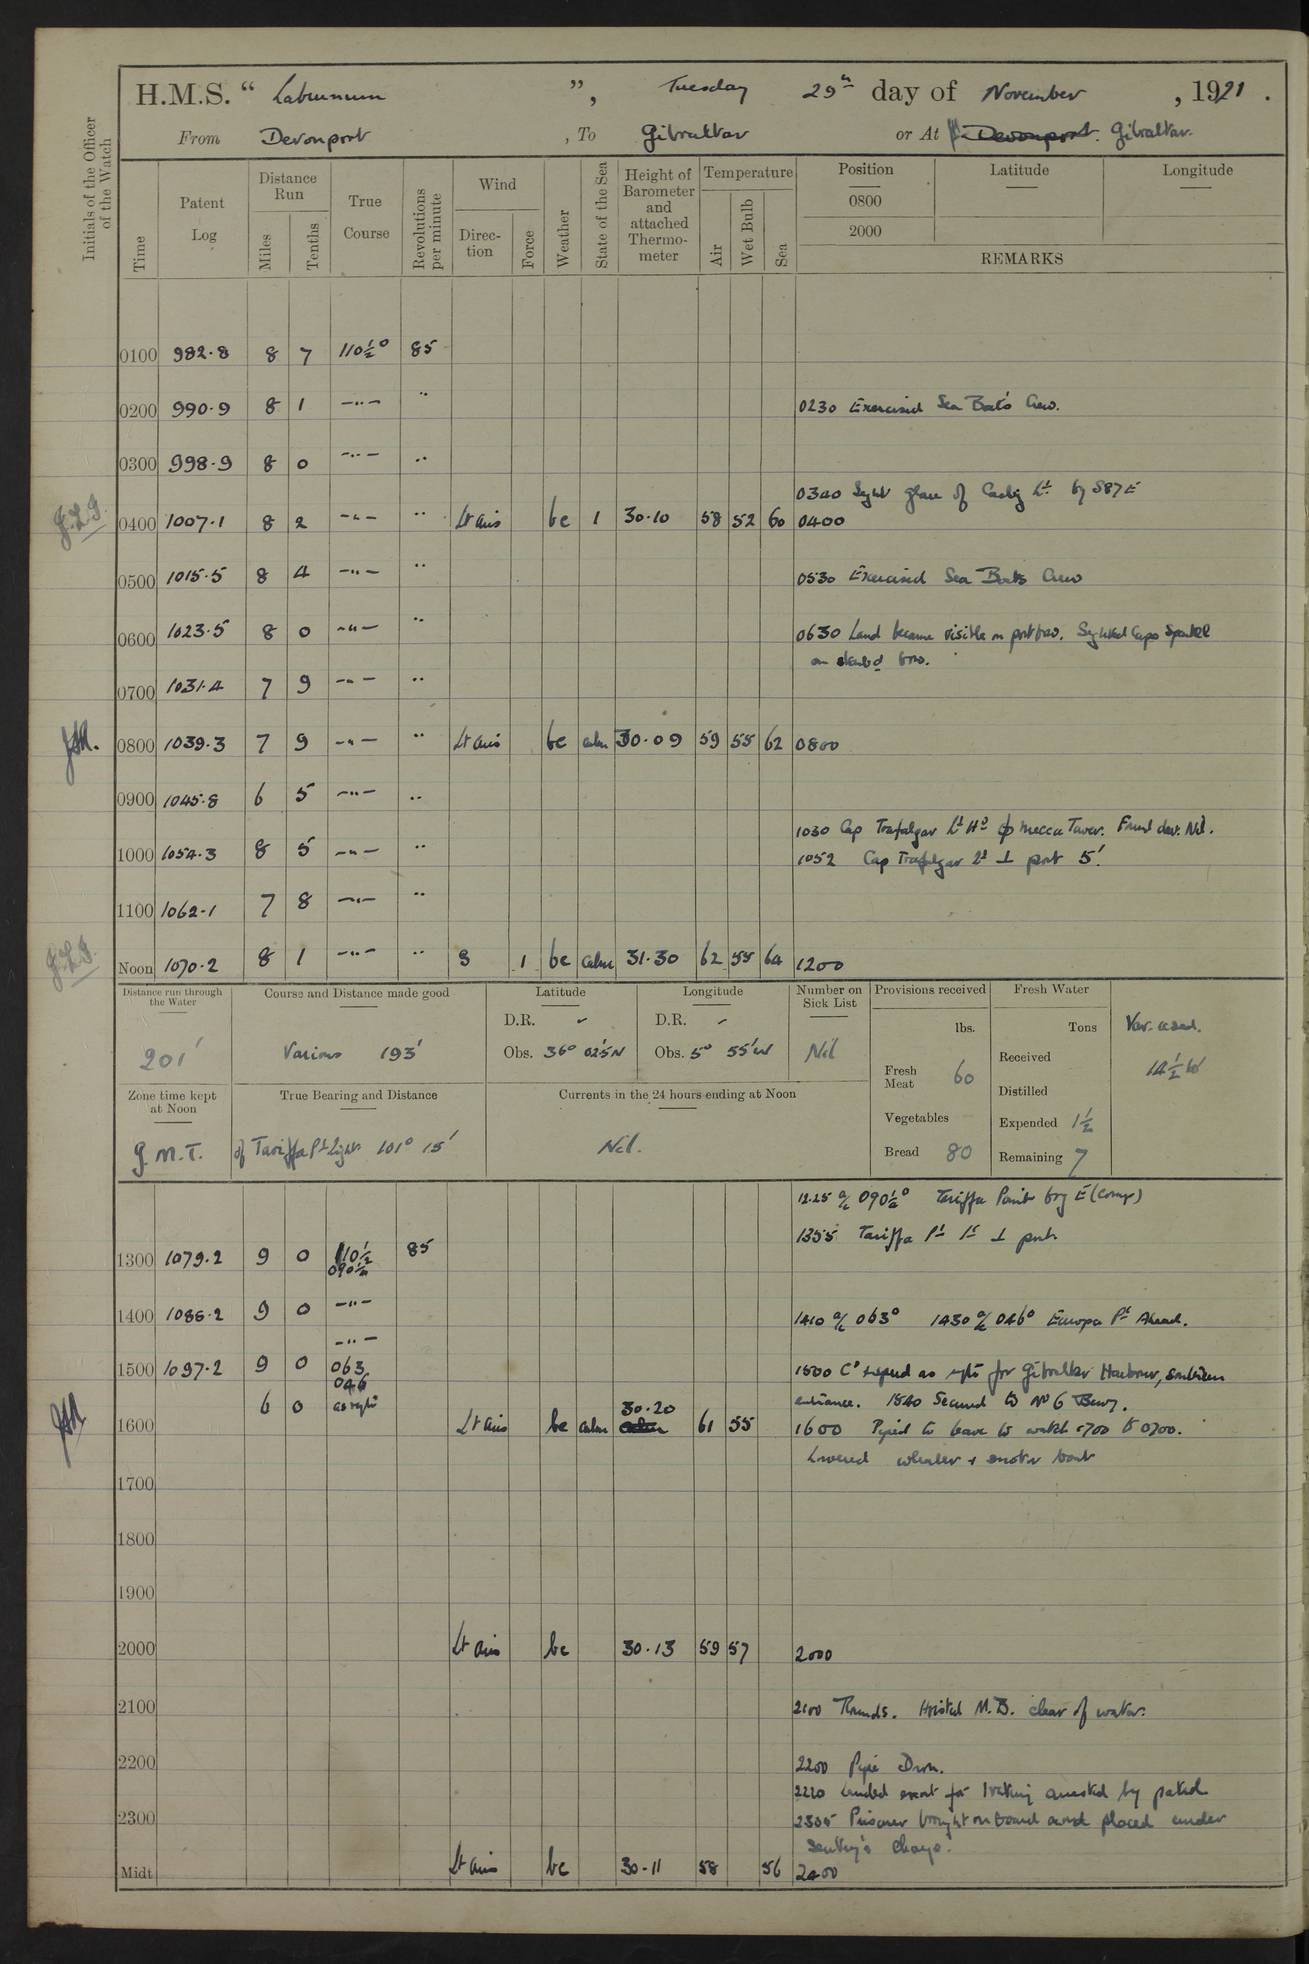 H.M.S. “ Laburnum ”, Tuesday 29th day of November, 1921.
From Devonport, To Gibraltar or At Devonport. Gibraltar.
Initials of the Officer of the Watch
Time
Patent Log
Distance Run
Miles
Tenths
True Course
Revolutions per minute
Wind
Direction
Force
Weather
State of the Sea
Height of Barometer and attached Thermometer
Temperature
Air
Wet Bulb
Sea
Position
0800
2000
Latitude
Longitude
REMARKS
0100 982.8 8 7 110½° 85
0200 990.9 8 1 —"— " 0230 Exercised Sea Boat's Crew.
0300 998.9 8 0 —"— "
0340 by S87E
0400 1007.1 8 2 —"— " Lt airs bc 1 30.10 58 52 60 0400
0500 1015.5 8 4 —"— " 0530 Exercised Sea Boats Crew
0600 1023.5 8 0 —"— " 0630 Land became visible on port bow. Sighted Cape Spartel
on starbd bow.
0700 1031.4 7 9 —"— "
0800 1039.3 7 9 —"— " Lt airs bc calm 30.09 59 55 62 0800
0900 1045.8 6 5 —"— "
1030 Cap Trafalgar Lt Ho ϕ Mecca Tower. Found dev. Nil.
1000 1054.3 8 5 —"— " 1052 Cap Trafalgar Lt ⊥ port 5'.
1100 1062.1 7 8 —"— "
Noon 1070.2 8 1 —"— " S 1 bc calm 31.30 62 55 64 1200
Distance run through the Water
201'
Course and Distance made good
Various 193'
Latitude
D.R. -
Obs. 36° 02'.5N
Longitude
D.R. -
Obs. 5° 55'W
Number on Sick List
Nil
Provisions received
lbs.
Fresh Meat 60
Vegetables
Bread 80
Fresh Water
Tons
Received
Distilled
Expended 1½
Remaining 7
Var. used.
14½ W
Zone time kept at Noon
G.M.T.
True Bearing and Distance
of Tariffa Pt Light 101° 15'
Currents in the 24 hours ending at Noon
Nil.
12.25 a/c 090½° Tariffa Point brg E (Comp)
1355 Tariffa Pt Lt ⊥ port.
1300 1079.2 9 0 110½ 85
090½
1400 1088.2 9 0 —"— 1410 a/c 063° 1430 a/c 046° Europa Pt Ahead.
—"—
1500 1097.2 9 0 063 1500 Co & speed as reqte for Gibraltar Harbour, southern
046
6 0 as reqte entrance. 1540 Secured to No 6 Buoy.
30.20
1600 Lt airs bc calm 61 55 1600 Piped to leave to watch 1700 to 0700.
Lowered whaler & motor boat
1700
1800
1900
2000 Lt airs bc 30.13 59 57 2000
2100 2100 Rounds. Hoisted M.B. clear of water.
2200 2200 Pipe Down.
2220 Landed escort for 1 rating arrested by patrol
2300 2305 Prisoner brought on board and placed under
Sentry's charge.
Midt. Lt airs bc 30.11 58 56 2400